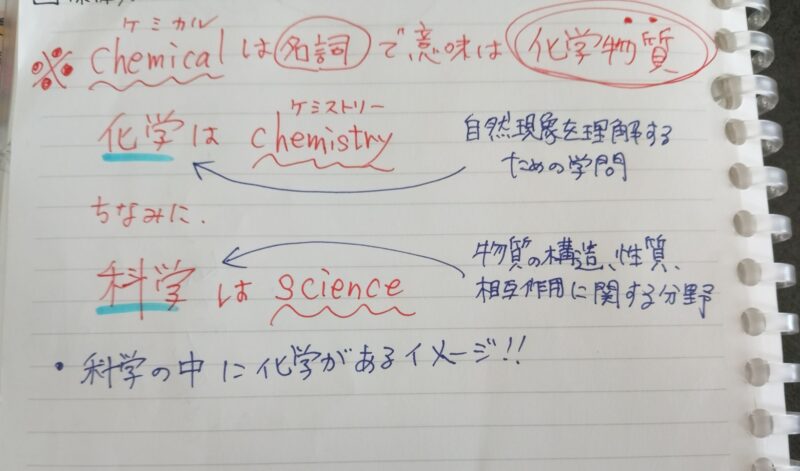 ケミカル
※ chemical は 名詞 で意味は 化学物質
ケミストリー
化学は chemistry
自然現象を理解する
ための学問
ちなみに、
科学は science
物質の構造、性質、
相互作用に関する分野
・科学の中に化学があるイメージ!!